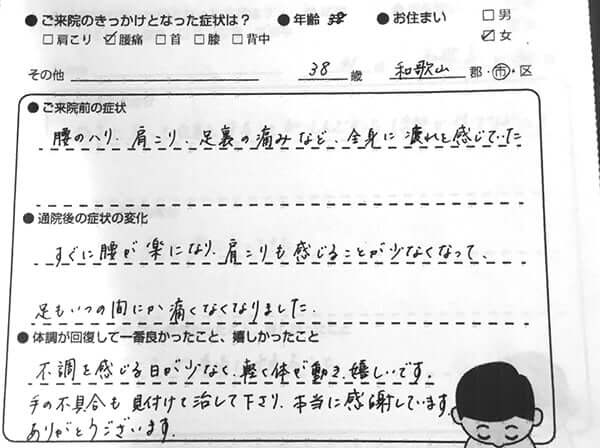 ●ご来院のきっかけとなった症状は? ●年齢 38 ●お住まい □男
□肩こり ☑腰痛 □首 □膝 □背中 ☑女
その他 38歳 和歌山 郡・市・区
●ご来院前の症状
腰のハリ、肩こり、足裏の痛みなど、全身に疲れを感じていた
●通院後の症状の変化
すぐに腰が楽になり、肩こりも感じることが少なくなって、
足もいつの間にか痛くなくなりました。
●体調が回復して一番良かったこと、嬉しかったこと
不調を感じる日が少なく、軽く体が動き、嬉しいです。
手の不具合も見付けて治して下さり、本当に感謝しています。
ありがとうございます。